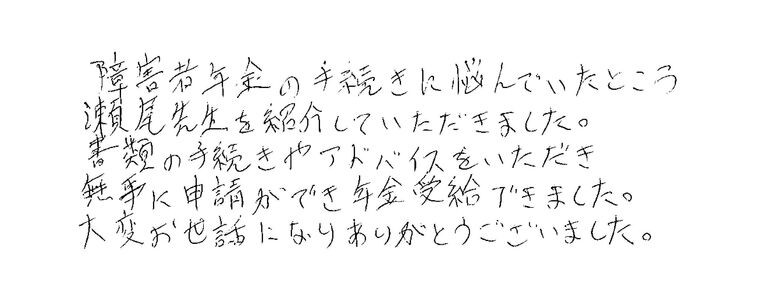 障害者年金の手続きに悩んでいたところ
瀬尾先生を紹介していただきました。
書類の手続きやアドバイスをいただき
無事に申請ができ年金受給できました。
大変お世話になりありがとうございました。